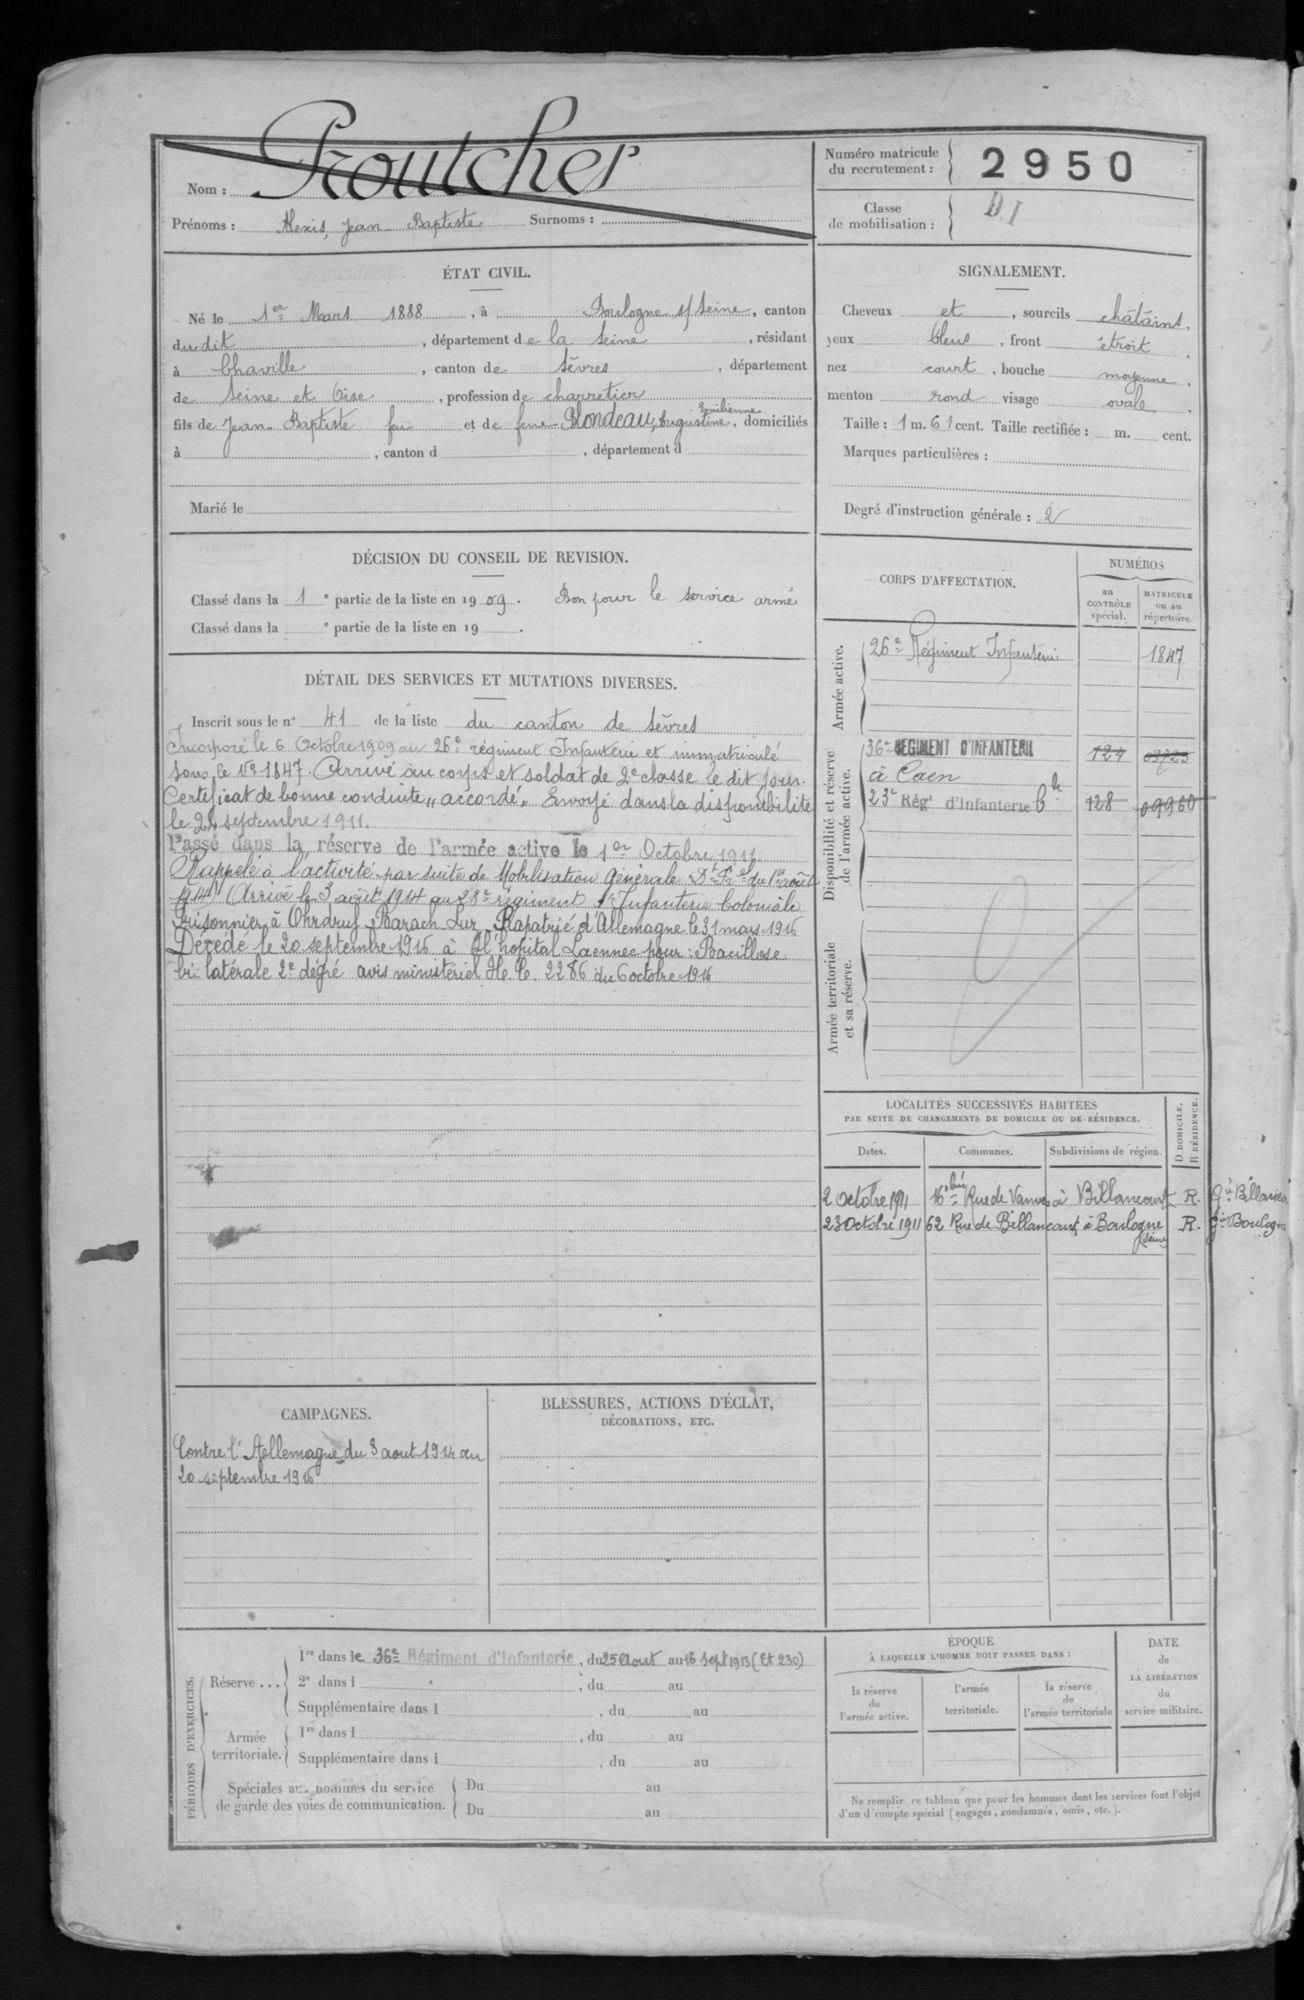 Nom : Proutcher
Prénoms : Alexis, Jean Baptiste Surnoms :
Numéro matricule du recrutement : 2950
Classe de mobilisation : D.I
ÉTAT CIVIL.
Né le 1er Mars 1888, à Boulogne s/ Seine, canton
du dit, département de la Seine, résidant
à Chaville, canton de Sèvres, département
de Seine et Oise, profession de charretier
fils de Jean-Baptiste feu et de feue Blondeau, Augustine, Emilienne domiciliés
à , canton d , département d
Marié le
SIGNALEMENT.
Cheveux et , sourcils châtains,
yeux bleus, front étroit,
nez court, bouche moyenne,
menton rond visage ovale.
Taille : 1 m. 61 cent. Taille rectifiée : m. cent.
Marques particulières :
Degré d'instruction générale : 2
DÉCISION DU CONSEIL DE REVISION.
Classé dans la 1e partie de la liste en 1909. Bon pour le service armé
Classé dans la e partie de la liste en 19 .
DÉTAIL DES SERVICES ET MUTATIONS DIVERSES.
Inscrit sous le n° 41 de la liste du canton de Sèvres
Incorporé le 6 Octobre 1909 au 26e régiment Infanterie et immatriculé
sous le No 1847. Arrivé au corps et soldat de 2e classe le dit jour.
Certificat de bonne conduite "accordé". Envoyé dans la disponibilité
le 24 septembre 1911.
Passé dans la réserve de l'armée active le 1er Octobre 1911.
Rappelé à l'activité par suite de Mobilisation Générale Dt Pel du 1er août
1914 Arrivé le 3 août 1914 au 23e régiment d'Infanterie Coloniale
Prisonnier à Ohrdruf Barach Lur. Rapatrié d'Allemagne le 31 mars 1916
Décédé le 20 septembre 1916 à l'hopital Laennec pour : Bacillose
bi latérale 2e dégré avis ministériel 2286 du 6 octobre 1916
CORPS D'AFFECTATION.
NUMÉROS
au CONTRÔLE spécial.
MATRICULE ou au répertoire.
Armée active.
26e Régiment Infanterie 1847
Disponibilité et réserve de l'armée active.
36e RÉGIMENT D'INFANTERIE 124
à Caen
23e Rég' d'Infanterie Cle 128 09960
Armée territoriale et sa réserve.
LOCALITÉS SUCCESSIVES HABITÉES
PAR SUITE DE CHANGEMENTS DE DOMICILE OU DE RÉSIDENCE.
Dates. Communes. Subdivisions de région. D DOMICILE. R RÉSIDENCE.
2 octobre 1911 16 bis Rue de Vanves à Billancourt R.
23 Octobre 1911 62 Rue de Billancourt à Boulogne Seine R. Gie Boulogne
CAMPAGNES.
Contre l'Allemagne du 3 aout 1914 au
20 septembre 1916
BLESSURES, ACTIONS D'ÉCLAT,
DÉCORATIONS, ETC.
PÉRIODES D'EXERCICES.
Réserve ...
1re dans le 36e Régiment d'Infanterie, du 25 Aout au 16 Sept 1913 (Et 230)
2e dans l , du au
Supplémentaire dans l , du au
Armée territoriale.
1re dans l , du au
Supplémentaire dans l , du au
Spéciales aux hommes du service de garde des voies de communication.
Du au
Du au
ÉPOQUE
À LAQUELLE L'HOMME DOIT PASSER DANS :
la réserve de l'armée active.
l'armée territoriale.
la réserve de l'armée territoriale
DATE de LA LIBÉRATION du service militaire.
Ne remplir ce tableau que pour les hommes dont les services font l'objet
d'un décompte spécial (engagés, condamnés, omis, etc.).